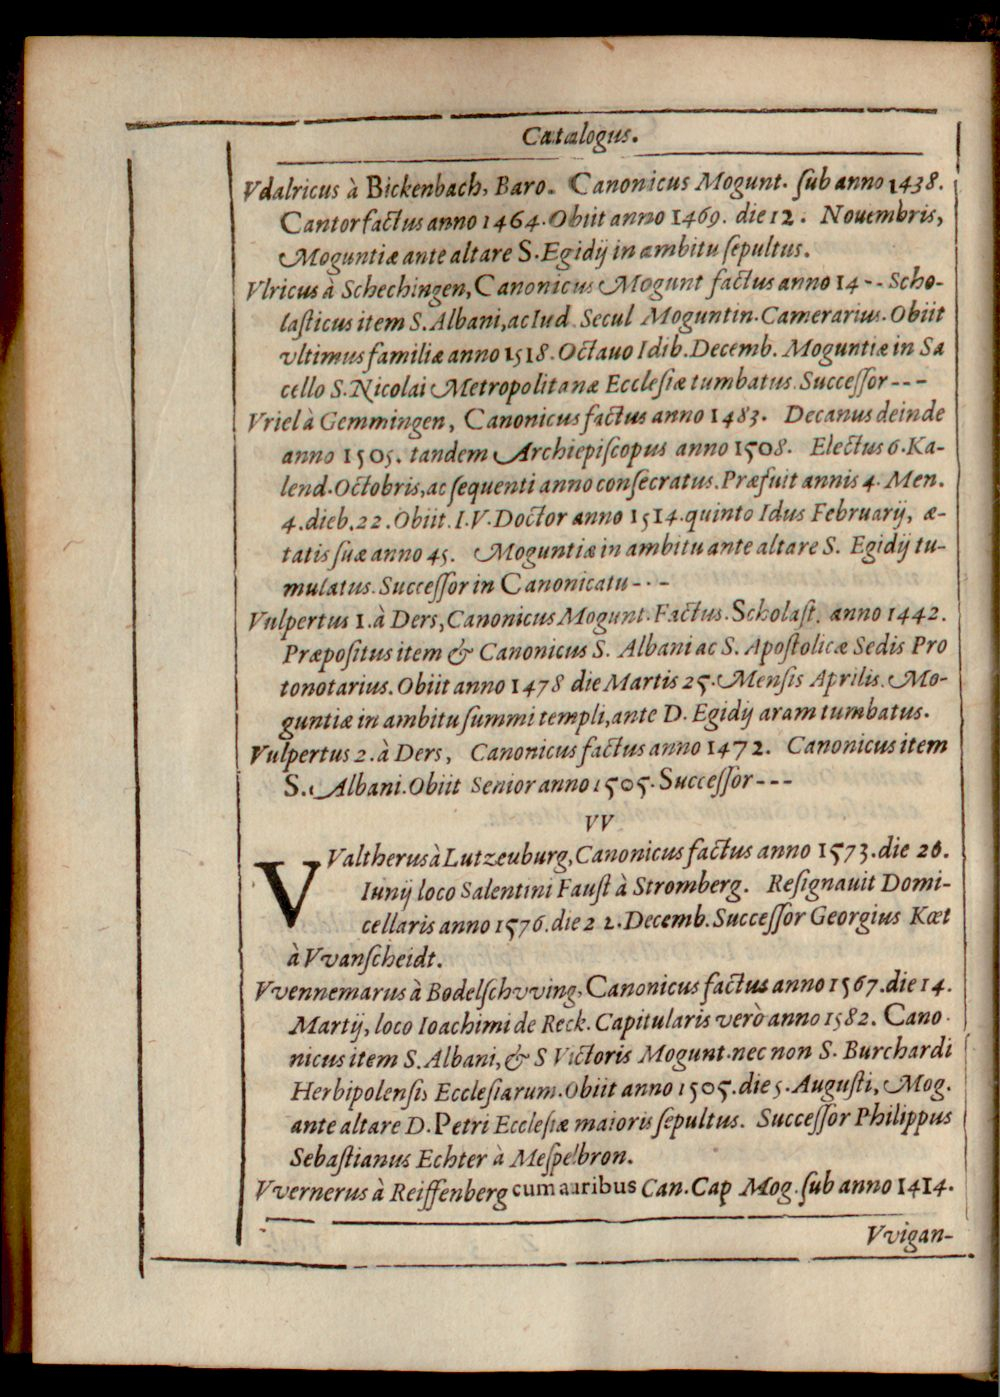 Catalogus.
Vdalricus à Bickenbach, Baro. Canonicus Mogunt. ſub anno 1438.
Cantor factus anno 1464. Obiit anno 1469. die 12. Nouembris,
Moguntiæ ante altare S. Egidij in ambitu ſepultus.
Vlricus à Schechingen, Canonicus Mogunt factus anno 14-- Scho-
laſticus item S. Albani, ac Iud Secul Moguntin. Camerarius. Obiit
vltimus familiæ anno 1518. Octauo Idib. Decemb. Moguntiæ in Sa
cello S. Nicolai Metropolitanæ Eccleſiæ tumbatus. Succeſſor---
Vriel à Gemmingen, Canonicus factus anno 1483. Decanus deinde
anno 1505. tandem Archiepiſcopus anno 1508. Electus 6. Ka-
lend. Octobris, ac ſequenti anno conſecratus. Præfuit annis 4. Men.
4. dieb. 22. Obiit. I. V. Doctor anno 1514. quinto Idus Februarij, æ-
tatis ſuæ anno 45. Moguntiæ in ambitu ante altare S. Egidij tu-
mulatus. Succeſſor in Canonicatu---
Vulpertus 1. à Ders, Canonicus Mogunt. Factus. Scholaſt. anno 1442.
Præpoſitus item & Canonicus S. Albani ac S. Apoſtolicæ Sedis Pro
tonotarius. Obiit anno 1478 die Martis 25. Menſis Aprilis. Mo-
guntiæ in ambitu ſummi templi, ante D. Egidij aram tumbatus.
Vulpertus 2. à Ders, Canonicus factus anno 1472. Canonicus item
S. Albani. Obiit Senior anno 1505. Succeſſor---
VV
VValtherus à Lutzeuburg, Canonicus factus anno 1573. die 26.
Iunij loco Salentini Fauſt à Stromberg. Reſignauit Domi-
cellaris anno 1576. die 22. Decemb. Succeſſor Georgius Kæt
à Vvanſcheidt.
Vvennemarus à Bodelſchvving, Canonicus factus anno 1567. die 14.
Martij, loco Ioachimi de Reck. Capitularis verò anno 1582. Cano-
nicus item S. Albani, & S Victoris Mogunt. nec non S. Burchardi
Herbipolenſis Eccleſiarum. Obiit anno 1505. die 5. Auguſti, Mog.
ante altare D. Petri Eccleſiæ maioris ſepultus. Succeſſor Philippus
Sebaſtianus Echter à Meſpelbron.
Vvernerus à Reiffenberg cum auribus Can. Cap Mog. ſub anno 1414.
Vvigan-